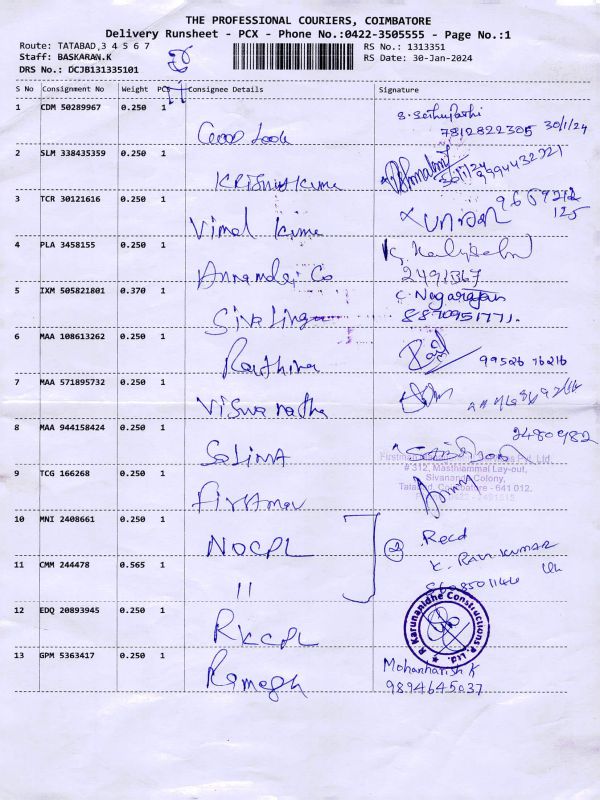 THE PROFESSIONAL COURIERS, COIMBATORE
Delivery Runsheet - PCX - Phone No.:0422-3505555 - Page No.:1
Route: TATABAD,3 4 5 6 7
RS No.: 1313351
Staff: BASKARAN.K
RS Date: 30-Jan-2024
DRS No.: DCJB131335101
S No Consignment No Weight PCS Consignee Details Signature
1 CDM 50289967 0.250 1
7812822305 30/1/24
Good Look
2 SLM 338435359 0.250 1
30/1/24 9994432221
Krishna Kuma
3 TCR 30121616 0.250 1
Vimal Kuma
4 PLA 3458155 0.250 1
2491367
Annamalai Co
5 IXM 505821801 0.370 1 C. Nagarajan
8870951771.
Sivalinga
6 MAA 108613262 0.250 1
99526 76216
Rathina
7 MAA 571895732 0.250 1
Viswanatha
8 MAA 944158424 0.250 1
2480982
Salima
9 TCG 166268 0.250 1
# 312, Masthiamal Lay-out,
Sivananda Colony,
Tatabad, Coimbatore - 641 012.
Firstman
10 MNI 2408661 0.250 1
NOCPL
2 Recd
K. Ravi Kumar
11 CMM 244478 0.565 1
11
12 EDQ 20893945 0.250 1
R Karunanidhe Constructions P. Ltd.
RKCPL
13 GPM 5363417 0.250 1
Mohanharish K
9894645037
Ramesh